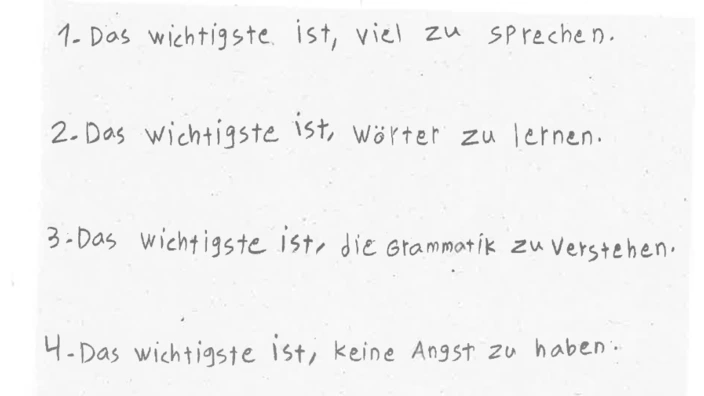 1- Das wichtigste ist, viel zu sprechen.
2- Das wichtigste ist, Wörter zu lernen.
3- Das wichtigste ist, die Grammatik zu verstehen.
4- Das wichtigste ist, keine Angst zu haben.